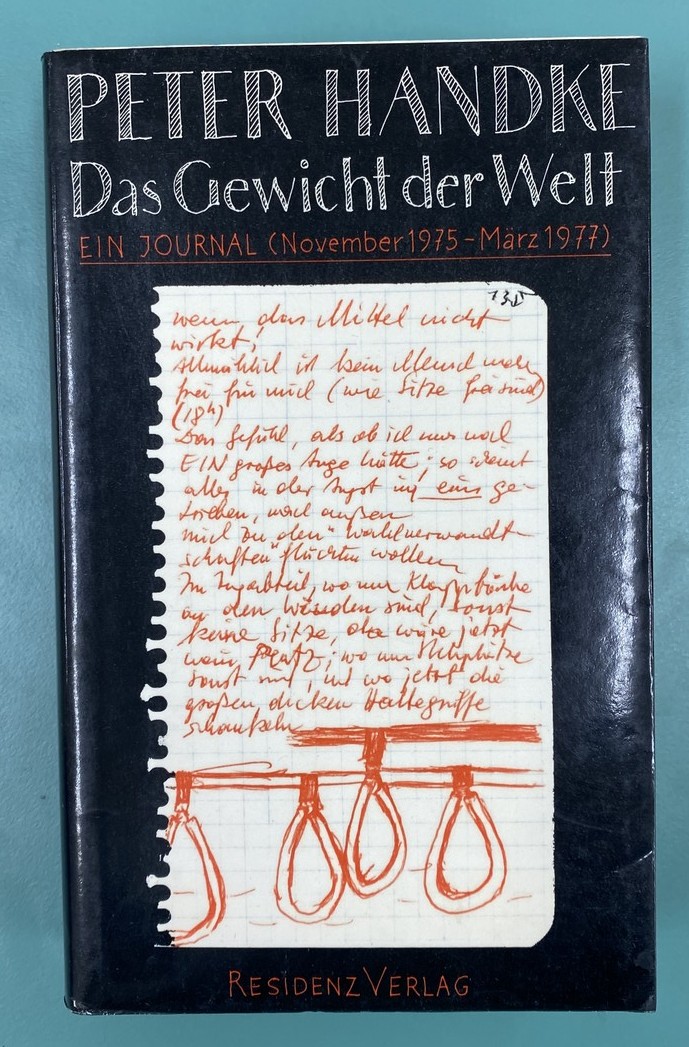 PETER HANDKE
Das Gewicht der Welt
EIN JOURNAL (November 1975 – März 1977)
wenn das Mittel nicht
wirkt!
Allmählich ist kein Mensch mehr
frei für mich (wie Sitze frei sind)
(18h)
Das Gefühl, als ob ich nur noch
EIN großes Auge hätte; so scheint
alles in der Angst in eins ge-
nach außen
mich zu den "Wahlverwandt-
schaften" flüchten wollen
Im Zugabteil, wo nur Klappbänke
an den Wänden sind, sonst
keine Sitze, da wäre jetzt
Platz; wo nur Stehplätze
sonst sind, und wo jetzt die
großen dicken Haltegriffe
schaukeln
RESIDENZ VERLAG